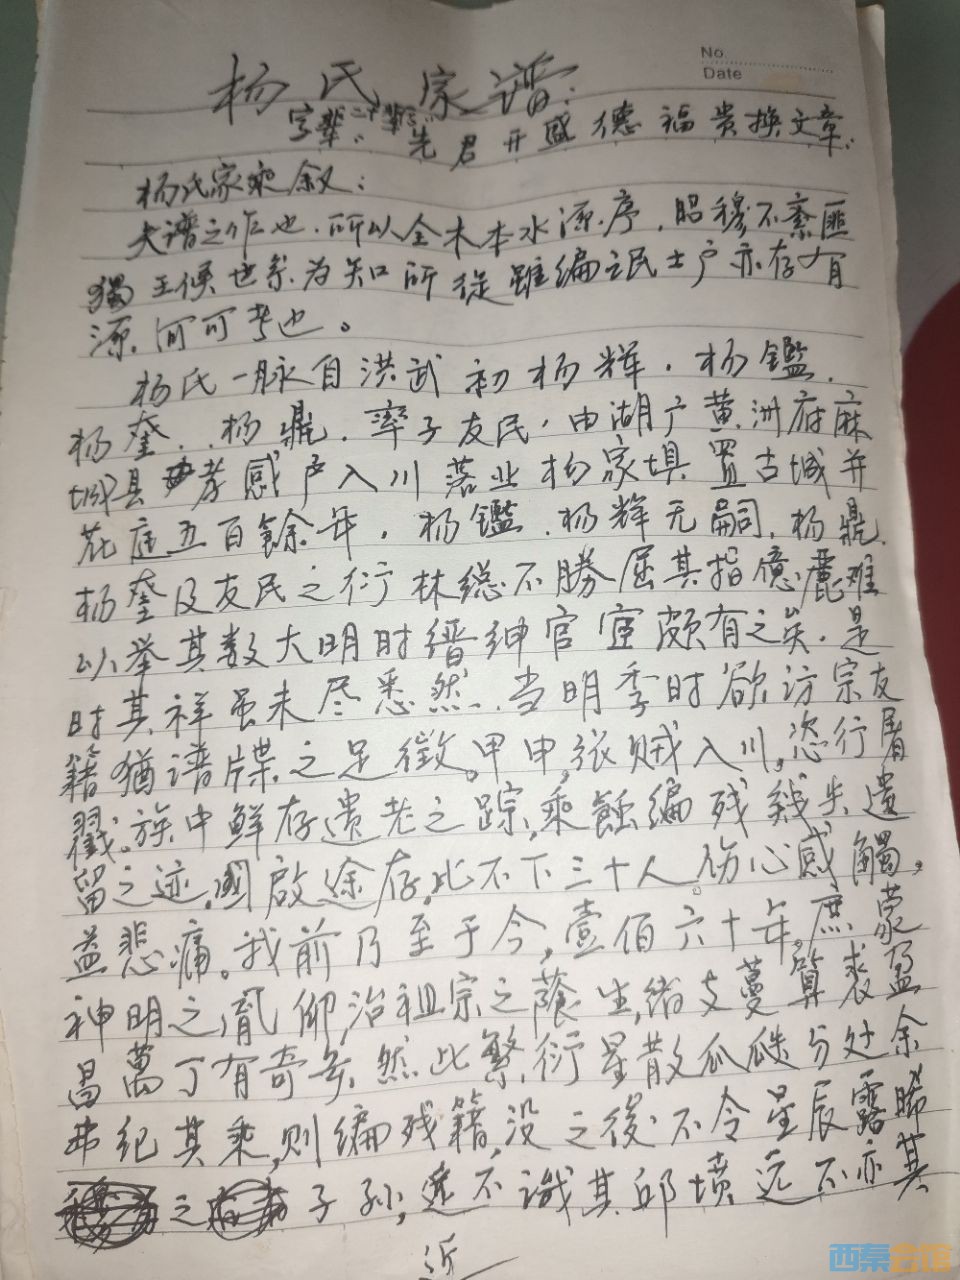 No.
Date
杨氏家谱:
字辈:二十辈:先君开盛德福贵换文章.
杨氏家乘叙:
夫谱之作也.所以全木本水源序,昭穆不紊匪
獨王侯世系为知所從雖编民士户亦存有
源.河可考也。
杨氏一脉自洪武初杨辉.杨鑑.
杨奎..杨鼎.率子友民,由湖广黄洲府麻
城县孝感户入川落业杨家填置古城并
花庄五百餘年,杨鑑.杨辉无嗣.杨鼎.
杨奎及友民之衍林总不勝屈其指億麗难
以举其数大明时缙绅官宦颇有之矣.是
时其祥虽未尽悉然..当明季时欲访宗友
籍猶谱牒之足徵。甲申,张贼入川,恣行屠
戳.族中鮮存遗老之踪,乘蝕编残幾失遗
留之迹,國啟途存,比不下三十人.伤心感觸,
益悲痛。我前乃至于今,壹佰六十年。庶蒙
神明之胤仰治祖宗之蔭生绪支蔓算裘盈
昌萬丁有奇矣.然此繁衍星散瓜瓞与处余
弗纪其乘,则编残籍,没之後不令星辰露晞
之子孙,遂不識其邱墳远不亦其
近
西秦会馆